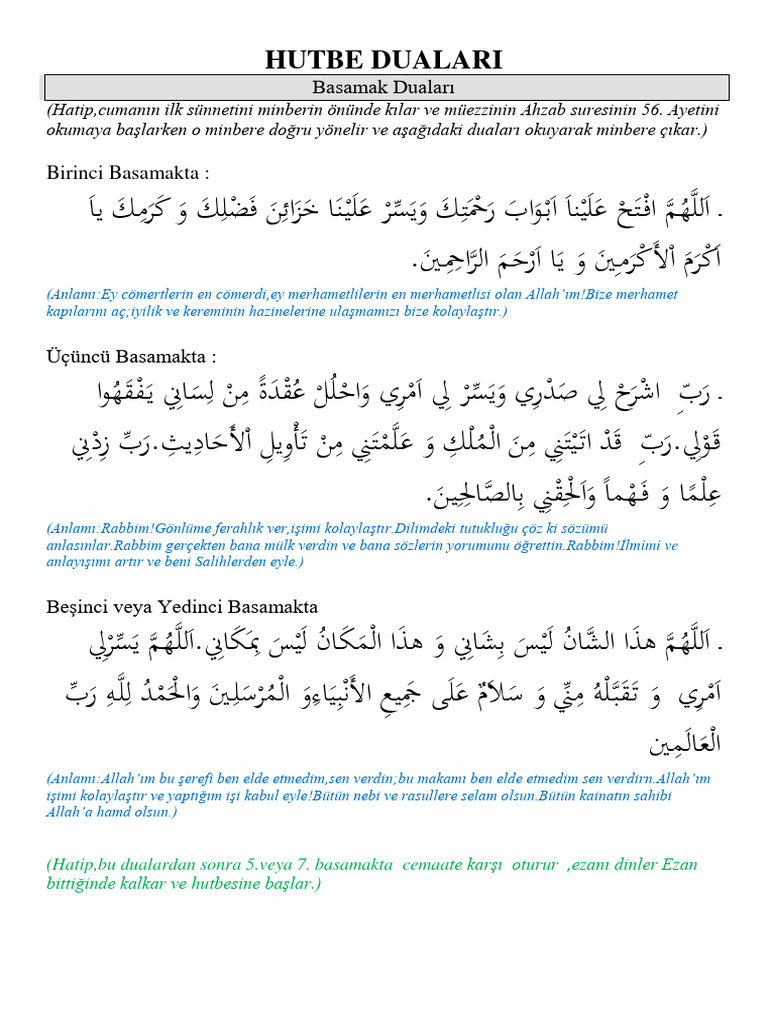 HUTBE DUALARI
Basamak Duaları
(Hatip,cumanın ilk sünnetini minberin önünde kılar ve müezzinin Ahzab suresinin 56. Ayetini
okumaya başlarken o minbere doğru yönelir ve aşağıdaki duaları okuyarak minbere çıkar.)
Birinci Basamakta :
. اَللَّهُمَّ افْتَحْ عَلَيْناَ اَبْوَابَ رَحْمَتِكَ وَيَسِّرْ عَلَيْنَا خَزَائِنَ فَضْلِكَ وَ كَرَمِكَ ياَ
اَكْرَمَ الْأَكْرَمِينَ وَ يَا اَرْحَمَ الرَّاحِمِينَ.
(Anlamı:Ey cömertlerin en cömerdi,ey merhametlilerin en merhametlisi olan Allah'ım!Bize merhamet
kapılarını aç;iyilik ve kereminin hazinelerine ulaşmamızı bize kolaylaştır.)
Üçüncü Basamakta :
. رَبِّ اشْرَحْ لِي صَدْرِي وَيَسِّرْ لِي اَمْرِي وَاحْلُلْ عُقْدَةً مِنْ لِسَانِي يَفْقَهُوا
قَوْلِي.رَبِّ قَدْ اتَيْتَنِي مِنَ الْمُلْكِ وَ عَلَّمْتَنِي مِنْ تَأْوِيلِ الْأَحَادِيثِ.رَبِّ زِدْنِي
عِلْمًا وَ فَهْماً وَاَلْحِقْنِي بِالصَّالِحِينَ.
(Anlamı:Rabbim!Gönlüme ferahlık ver,işimi kolaylaştır.Dilimdeki tutukluğu çöz ki sözümü
anlasınlar.Rabbim gerçekten bana mülk verdin ve bana sözlerin yorumunu öğrettin.Rabbim!İlmimi ve
anlayışımı artır ve beni Salihlerden eyle.)
Beşinci veya Yedinci Basamakta
. اَللَّهُمَّ هذَا الشَّانُ لَيْسَ بِشَانِي وَ هذَا الْمَكَانُ لَيْسَ بِمَكَانِي.اَللَّهُمَّ يَسِّرْلِي
اَمْرِي وَ تَقَبَّلْهُ مِنِّي وَ سَلاَمٌ عَلَى جَمِيعِ الأَنْبِيَاءِوَ الْمُرْسَلِينَ وَالْحَمْدُ لِلَّهِ رَبِّ
الْعَالَمِين
(Anlamı:Allah'ım bu şerefi ben elde etmedim,sen verdin;bu makamı ben elde etmedim sen verdirn.Allah'ım
işimi kolaylaştır ve yaptığım işi kabul eyle!Bütün nebi ve rasullere selam olsun.Bütün kainatın sahibi
Allah'a hamd olsun.)
(Hatip,bu dualardan sonra 5.veya 7. basamakta cemaate karşı oturur ,ezanı dinler Ezan
bittiğinde kalkar ve hutbesine başlar.)